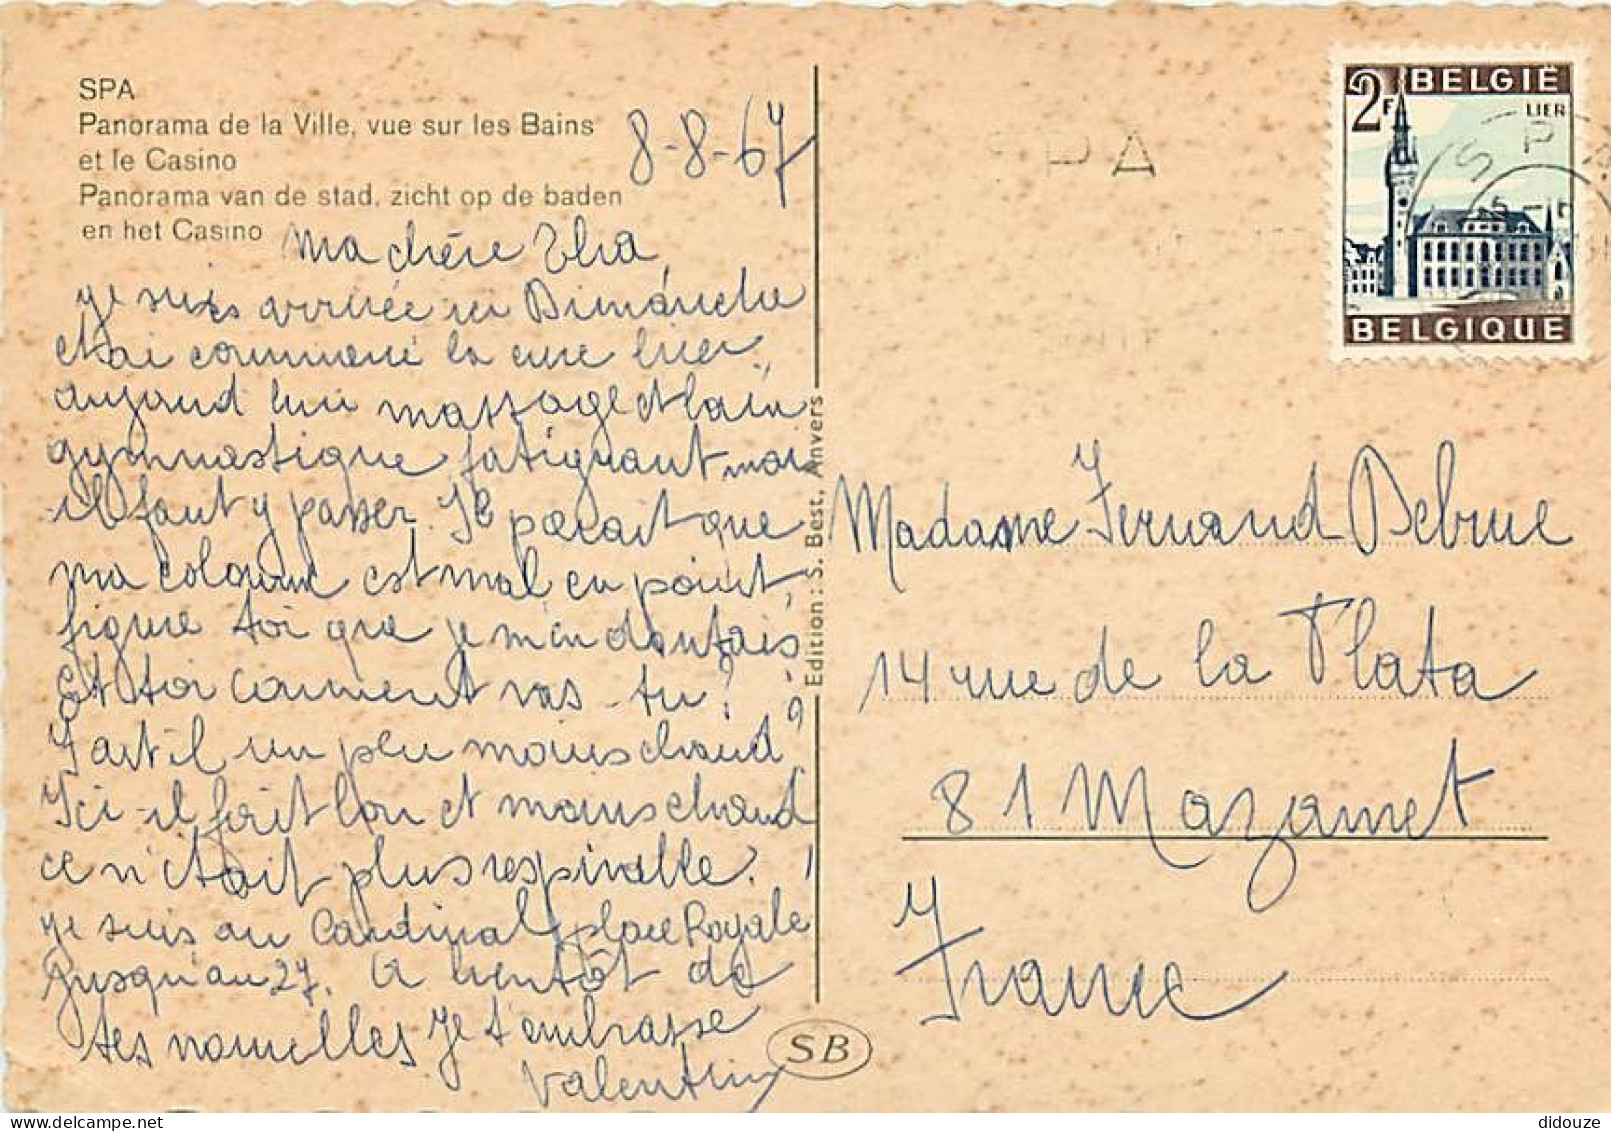 SPA
Panorama de la Ville, vue sur les Bains
et le Casino
Panorama van de stad, zicht op de baden
en het Casino
8-8-67
Ma chère
je suis arrivée ici Dimanche
et ai commencé la cure hier,
aujourd'hui massage et bain
gymnastique fatiguant mais
il faut y passer. Il parait que
ma colonne est mal en point,
figure toi que je m'en doutais
Et toi comment vas-tu ?
Fait-il un peu moins chaud ?
Ici il fait bon et moins chaud
ce n'était plus respirable.
je suis au Cardinal place Royale
jusqu'au 27. A bientôt de
tes nouvelles. Je t'embrasse
Valentine
Edition : S. Best, Anvers
SB
SPA
BELGIË
2F
LIER
BELGIQUE
SPA
Madame Fernand Debrue
14 rue de la Plata
81 Mazamet
France
didouze